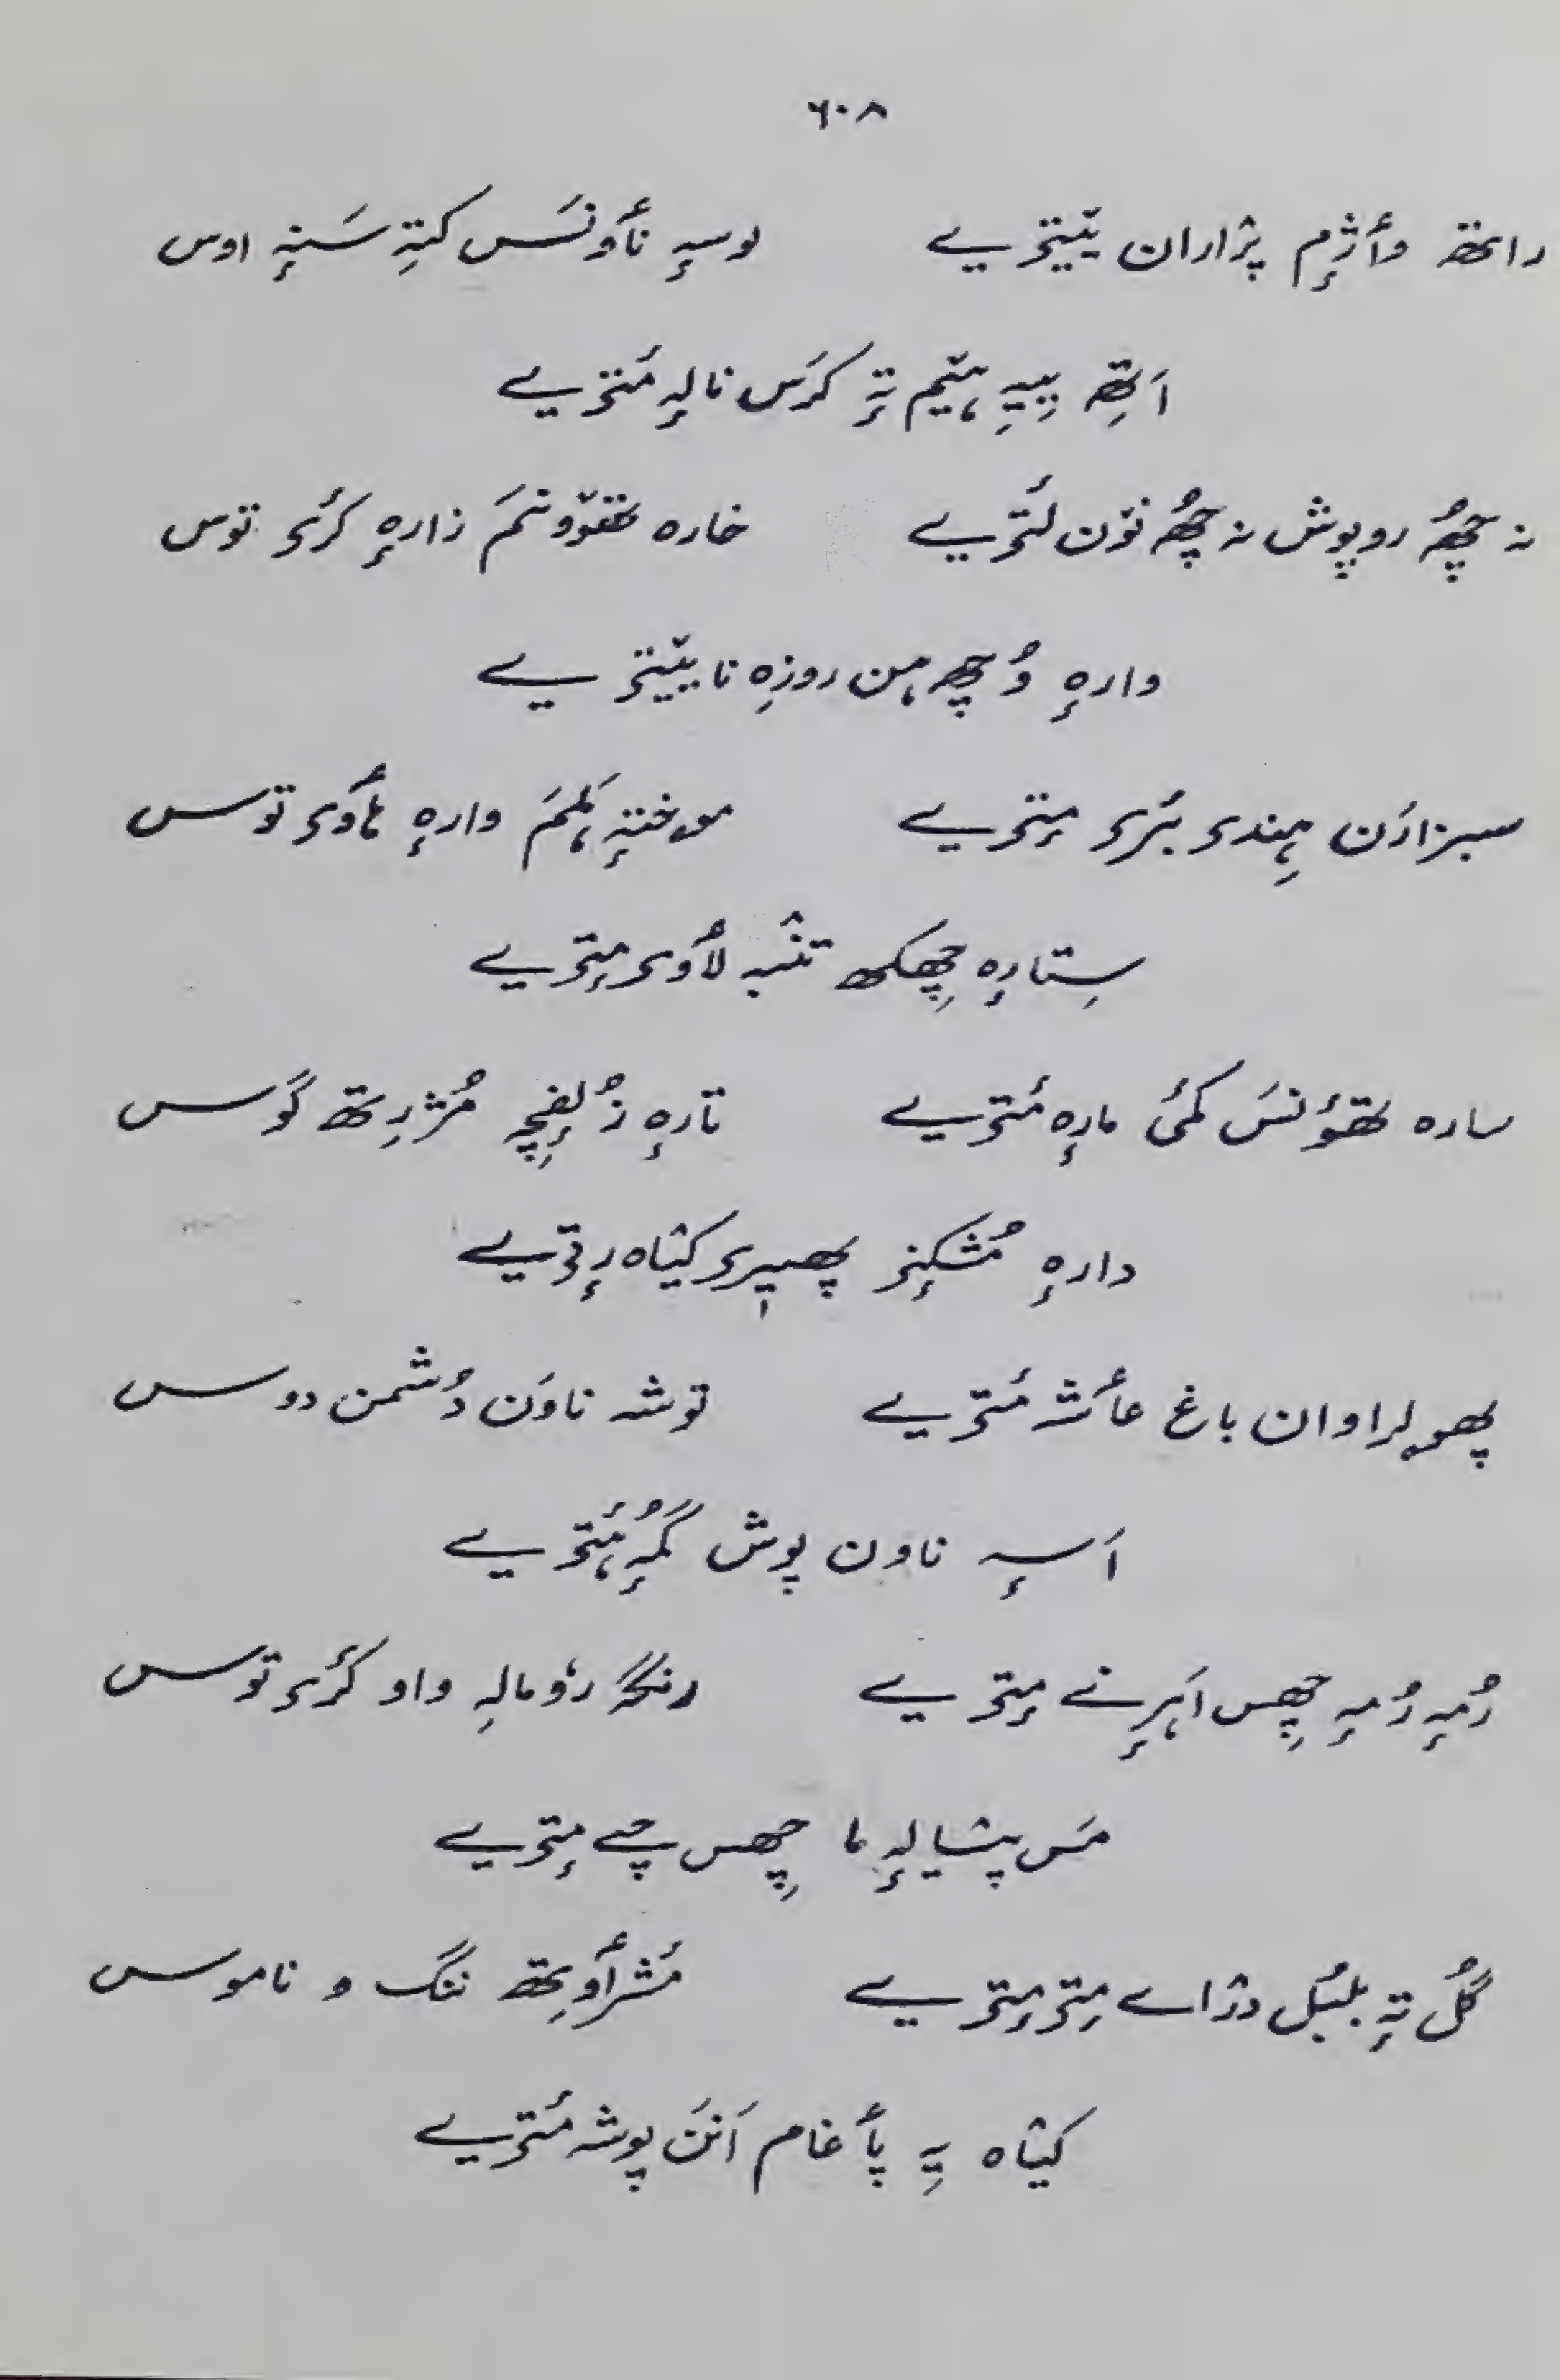 ٦٠٨
راتھ وٲژٕم پژاران یٔتیٖے لوسہٕ نٲونَس کتہِ سَنہٕ اوس
اَتھِ یِیہِ ہیٚم تہٕ کرَس نالہٕ مٔتیٖے
نہ چھُ روپوش نہ چھُ نوٚن لٔتیٖے خارہ تھوٚونَم زارہٕ کٔری توس
وارہٕ وُچھ ہن روزِہ نا یٔتیٖے
سبزارَن ہِندی بٔری مٕتیٖے سوختہٕ کٔلِم وارہٕ ہٲوی توس
سِتارہٕ چھِکھ تنبہٕ لٲوی مٕتیٖے
سارہ تھوٚنَس کمیٔ مارہٕ مٔتیٖے تارہٕ زُلفٕچہِ مُژرِتھ گوس
دارہٕ مُشکٕنی پھیٖری کیٛاہ رٕتیٖے
پھولراوان باغ عٲشہ مٔتیٖے توشہ ناوَن دُشمن دوس
اَسہٕ ناون پوش گُمہٕ ۂتیٖے
دُمہٕ دُمہٕ چھِس اَہرٕنے مٕتیٖے رنگہٕ رۄمالہِ واو کٔری توس
مَس پیٛالہٕ ما چھِس چے مٕتیٖے
گُل تہٕ بلبُل دراے مٕتی مٕتیٖے مُشرٲوِتھ ننگ و ناموس
کیٛاہ یہِ پٲغام اَنَن پوشہ مٔتیٖے